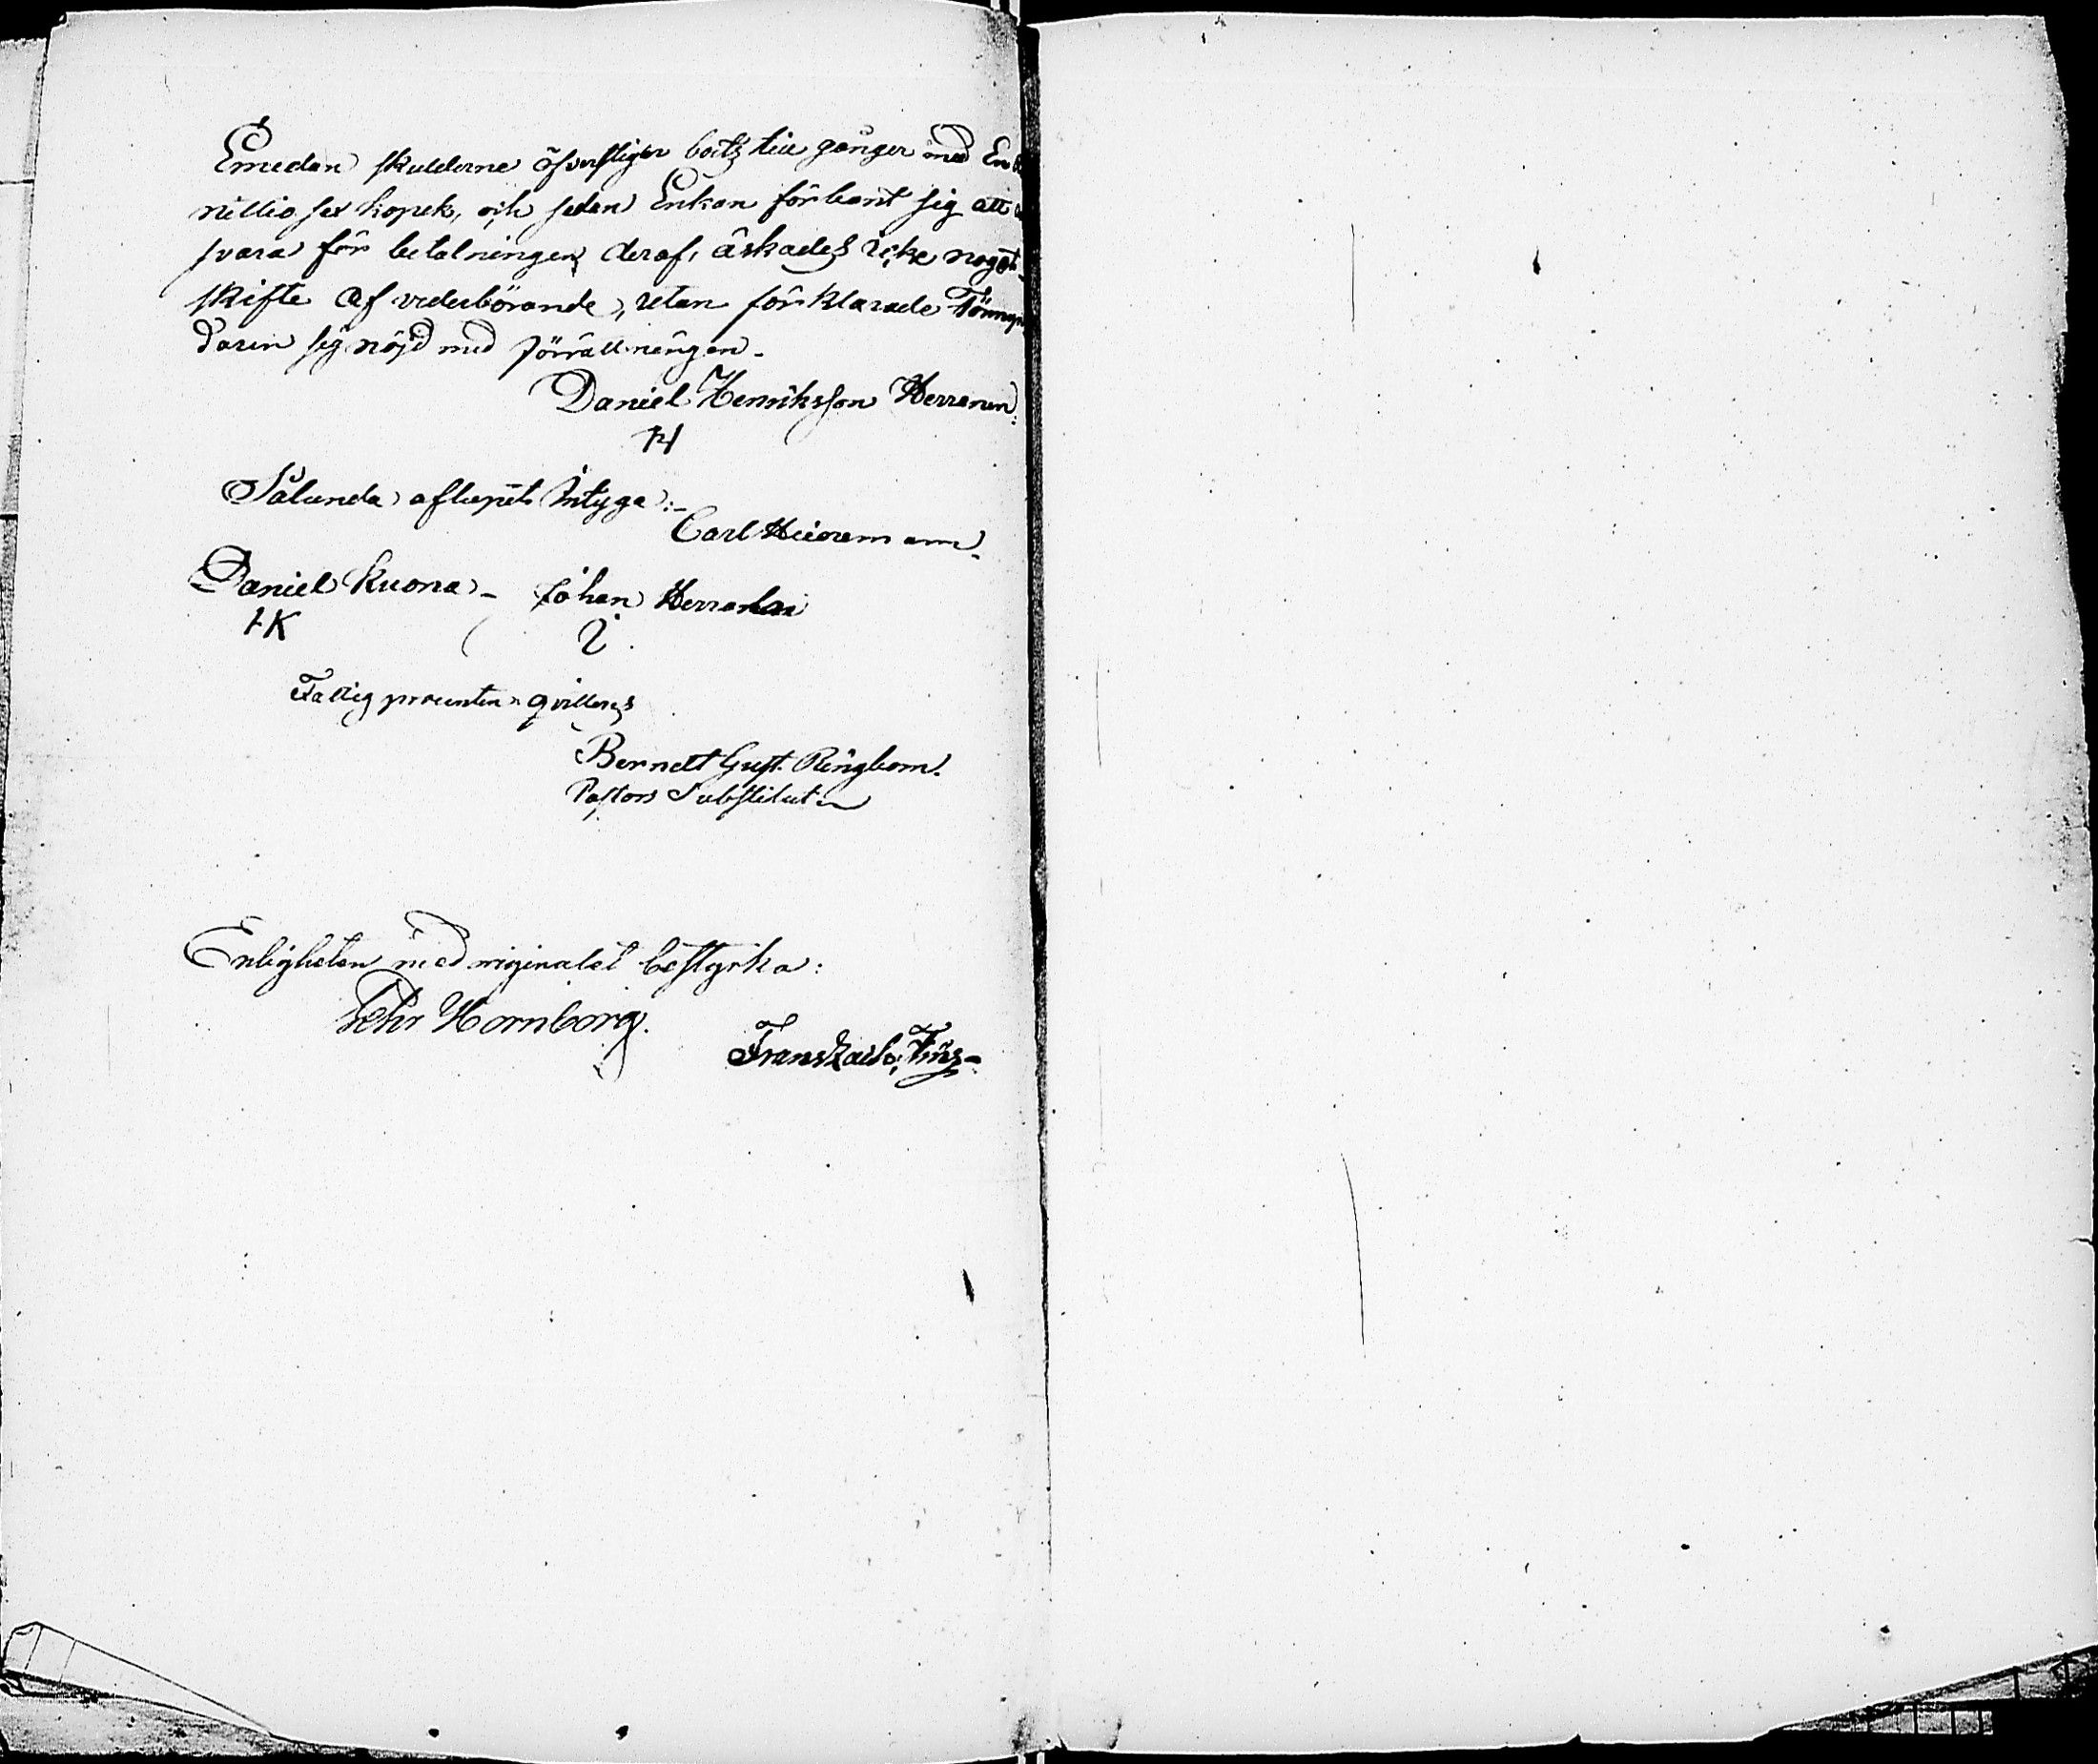 Emedan skulderne öfverstiger boets till gånger med En
nittio sex kopek, och sedan Enkan förbant sig att
svara för betalningen deraf, äskades icke något
skifte af vederbörande, utan förklarade Förmyn
daren sig nöjd med förrättningen.
Daniel Henriksson Herranen:
Sålunda aflupit intyga:
Carl
Daniel Kuona - Johan Herranen
HK
Fattig procenten qvitteras
Berndt Gust. Ringbom.
Pastors Substitut
Enligheten med originalet bestyrka:
Fehr Hornborg.
Frans